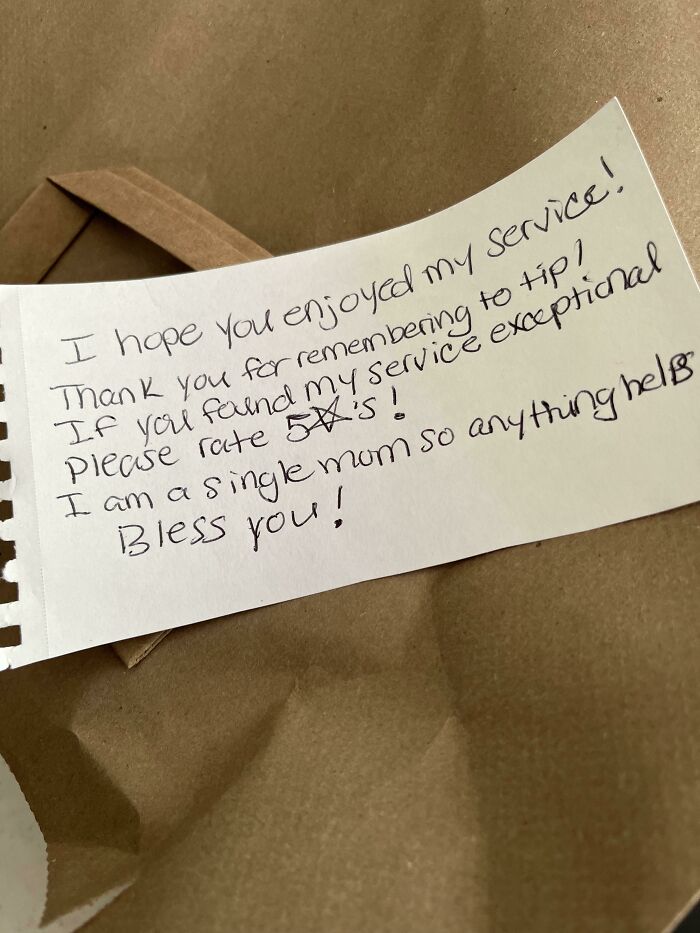 I hope you enjoyed my service!
Thank you for remembering to tip!
If you found my service exceptional
Please rate 5☆'s!
I am a single mom so anything helps
Bless you!